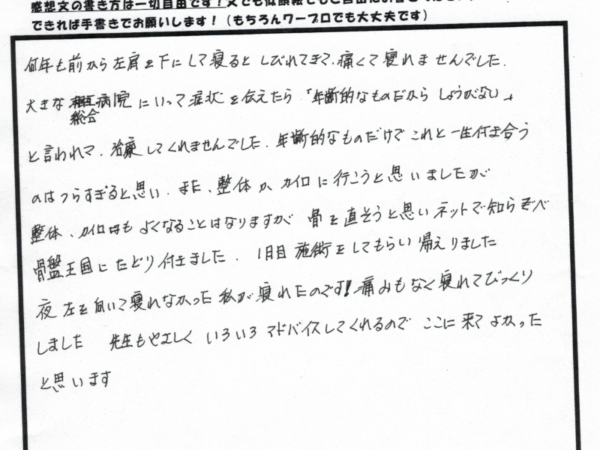 感想文の書き方は一切自由です！
できれば手書きでお願いします！（もちろんワープロでも大丈夫です）
何年も前から左肩を下にして寝ると しびれてきて、痛くて寝れませんでした。
大きな 総合病院 にいって症状を伝えたら「年齢的なものだから しょうがない」
と言われて、治療してくれませんでした。年齢的なものだけで これと一生付き合う
のはつらすぎると思い、また、整体か、カイロに行こうと思いましたが
整体、カイロはもよくなることはなりますが 骨を直そうと思いネットで知らべ
骨盤王国にたどり付きました。1日目 施術をしてもらい 帰えりました
夜 左を向いて寝れなかった私が寝れたのです！痛みもなく寝れてびっくり
しました 先生もやさしく いろいろアドバイスしてくれるので ここに来てよかった
と思います